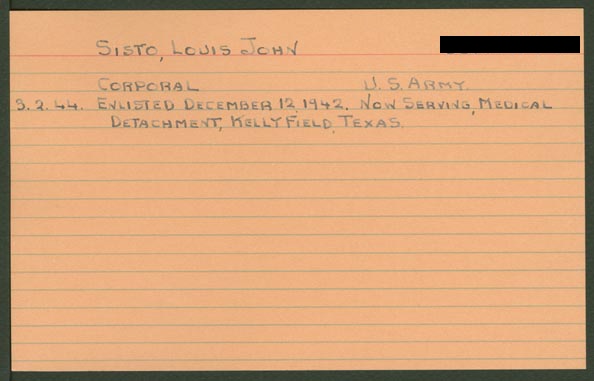 SISTO, LOUIS JOHN
CORPORAL U.S. ARMY.
3.2.44. ENLISTED DECEMBER 12, 1942. NOW SERVING, MEDICAL
DETACHMENT, KELLY FIELD, TEXAS.